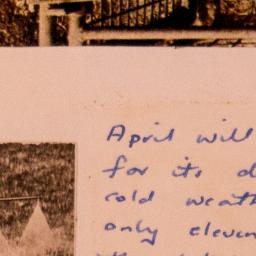 April will
for its d
cold weath
only eleven